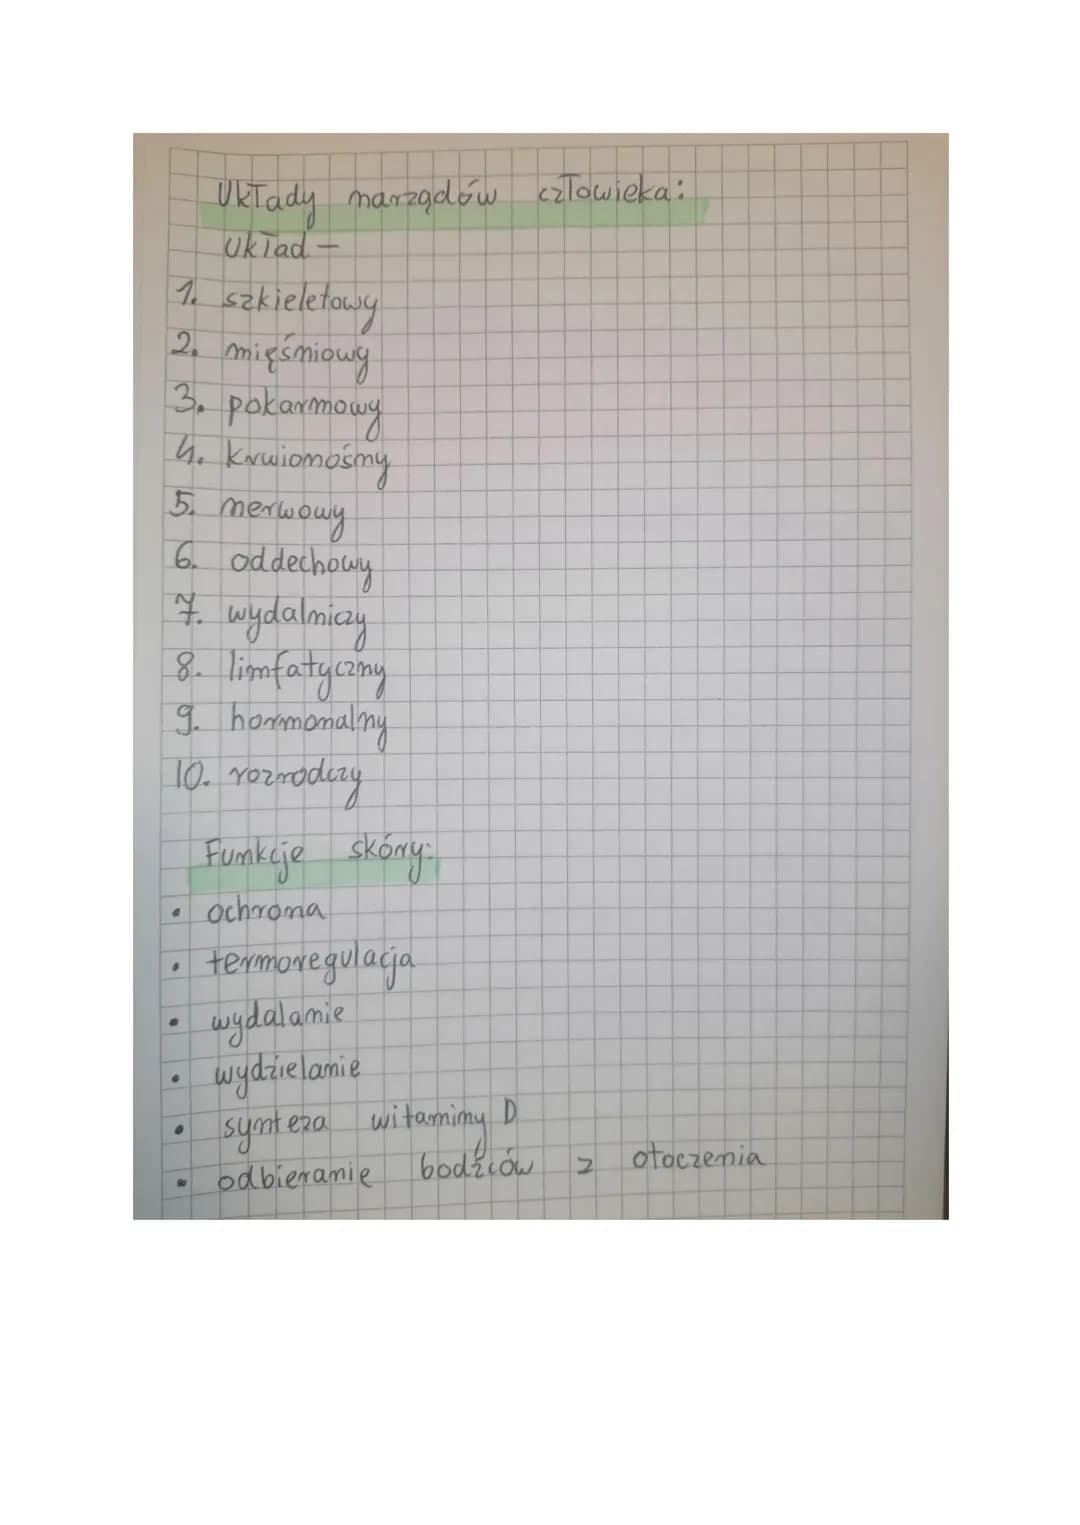 Układy narządów człowieka:
Układ -
1. szkieletowy
2. mięśniowy
3. pokarmowy
4. krwionośny
5. nerwowy
6. oddechowy
7. wydalniczy
8. limfatyczny
9. hormonalny
10. rozrodczy
Funkcje skóry:
• ochrona
• termoregulacja
• wydalanie
• wydzielanie
• synteza witaminy D
• odbieranie bodźców z otoczenia